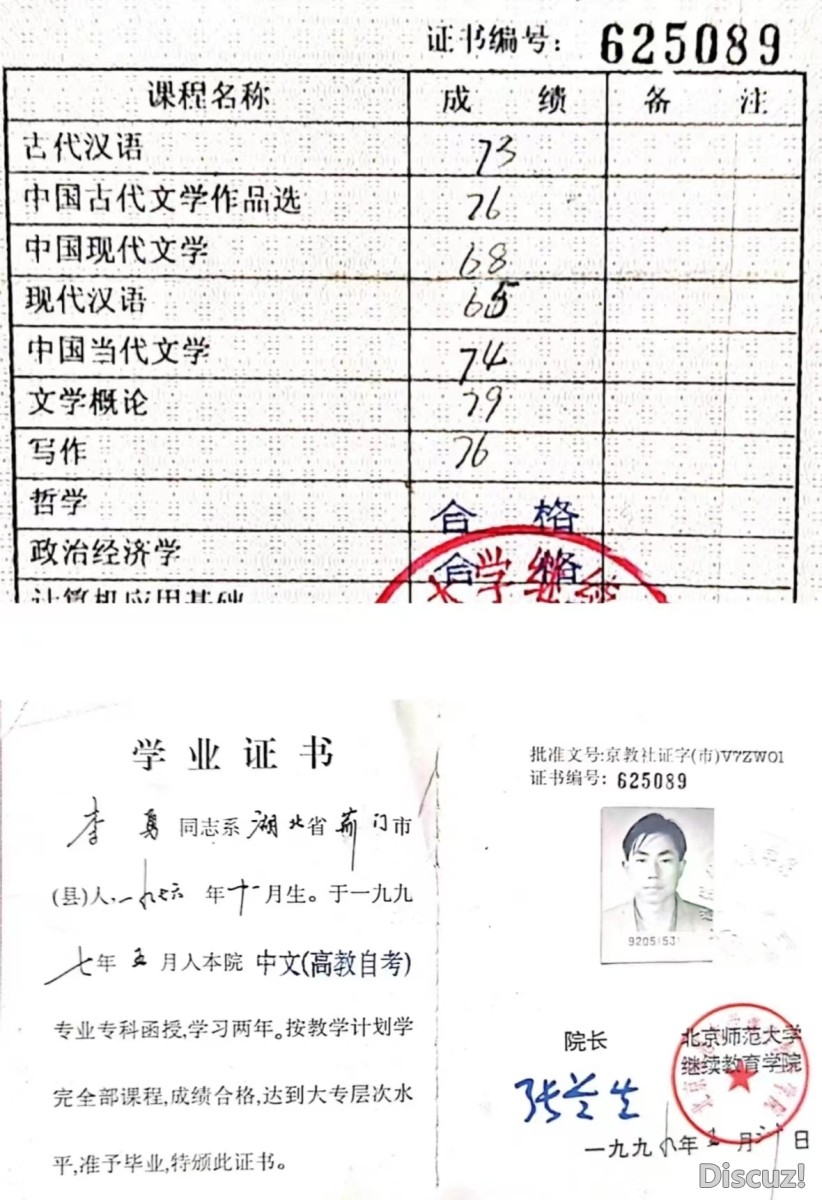 证书编号: 625089
课程名称 成 绩 备 注
古代汉语 73
中国古代文学作品选 76
中国现代文学 68
现代汉语 65
中国当代文学 74
文学概论 79
写作 76
哲学 合 格
政治经济学 合 格
计算机应用基础
大学继续
学业证书
李勇同志系湖北省荆门市
(县)人,一九七六年十一月生。于一九九
七年五月入本院中文(高教自考)
专业专科函授,学习两年。按教学计划学
完全部课程,成绩合格,达到大专层次水
平,准予毕业,特颁此证书。
批准文号:京教社证字(市)V7ZW01
证书编号: 625089
9205153
院长
北京师范大学
继续教育学院
张兰生
一九九八年五月 日
Discuz!